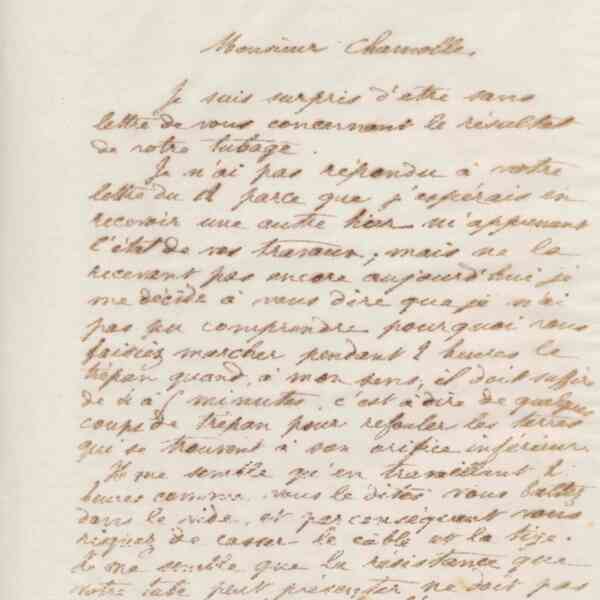 Monsieur Chamolle,
Je suis surpris d'être sans
lettre de vous concernant le résultat
de votre tubage.
Je n'ai pas répondu à votre
lettre du parce que j'espérais en
recevoir une autre hier m'apprenant
l'état de vos travaux, mais ne la
recevant pas encore aujourd'hui je
me décide à vous dire que je n'ai
pas pu comprendre pourquoi vous
faisiez marcher pendant 2 heures le
trépan quand, à mon sens, il doit suffire
de à 5 minutes, c'est à dire de quelques
coups de trépan pour refouler les terres
qui se trouvent à son orifice inférieur.
Il me semble qu'en travaillant 2
heures comme vous le dites vous battez
dans le vide, et par conséquent vous
risquez de casser le câble et la tige.
Il me semble que la résistance que
votre tube peut présenter ne doit pas